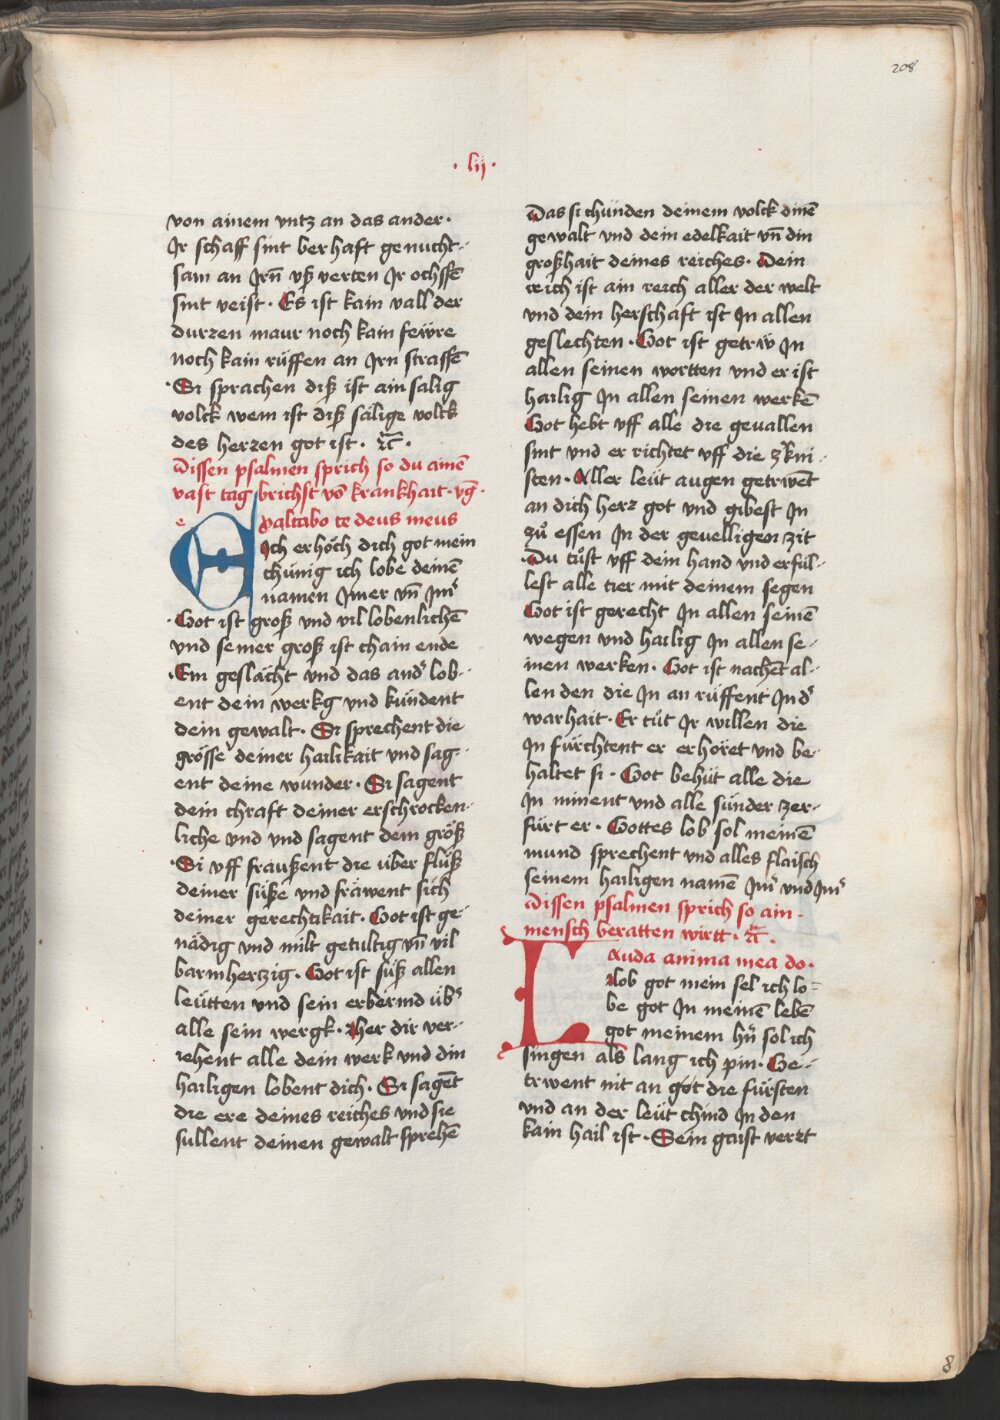 208
· lij ·
von ainem vntz an das ander ·
Ir schaff sint berhaft genucht-
sam an Irn̄ vsz verten Ir ochssē
sint veist · Es ist kain vall der
durzen maur noch kain fewre
noch kain rüffen an Irn strassē
· Si sprachen disz ist ain salig
volck wem ist disz sälige volck
des herzen got ist · ꝛc̄ ·
Dissen psalmen sprich so du ainē
vast tag brichst vō krankhait · vḡ ·
e
Exaltabo te deus meus
Ich erhöch dich got mein
chünig ich lobe deinē
namen Imer vn̄ Im̄
· Got ist grosz vnd vil lobenlichē
vnd seiner grosz ist chain ende
· Ein geslächt vnd das and' lob-
ent dein werkg vnd kündent
dein gewalt · Si sprechent die
grösse deiner hailikait vnd sag-
ent deine wunder · Si sagent
dein chraft deiner erschrocken-
liche vnd vnd sagent dein grösz
· Si vff frauszent die über flüsz
deiner süsze vnd fräwent sich
deiner gerechtikait · Got ist ge-
nädig vnd milt getultig vn̄ vil
barmhertzig · Got ist süsz allen
leütten vnd sein erbermd üb'
alle sein wergk · Her dir ver-
iehent alle dein werk vnd din
hailigen lobent dich · Si sagēt
die ere deines reiches vnd sie
süllent deinen gewalt sprehē
Das si chünden deinem volck dinē
gewalt vnd dein edelkait vn̄ din
groszhait deines reiches · Dein
reich ist ain reich aller der welt
vnd dein herschaft ist In allen
geslechten · Got ist getrw In
allen seinen wortten vnd er ist
hailig In allen seinen werkē
Got hebt vff alle die geuallen
sint vnd er richtet vff die zkni-
sten · Aller leüt augen getrwēt
an dich herz got vnd gibest In
zů essen In der geuelligen zit
· Du tůst vff dein hand vnd erfül-
lest alle tier mit deinem segen
Got ist gerecht In allen seinē
wegen vnd hailig In allen se-
inen werken · Got ist nachēt al-
len den die In an rüffent In d'
warhait · Er tůt Ir willen die
In fürchtent er erhöret vnd be-
haltet si · Got behüt alle die
In minent vnd alle sünder zer-
fürt er · Gottes lob sol meinē
mund sprechent vnd alles flaisch
seinem hailigen namē Im' vnd Im'
Dissen psalmen sprich so ain-
mensch beratten wirtt · ꝛc̄ ·
Lauda anima mea do ·
Lob got mein sel ich lo-
be got In meinē lebē
got meinem hn̄ sol ich
singen als lang ich pin · Ge-
trwent nit an got die fürsten
vnd an der leüt chind In den
kain hail ist · Sein gaist verzt
8